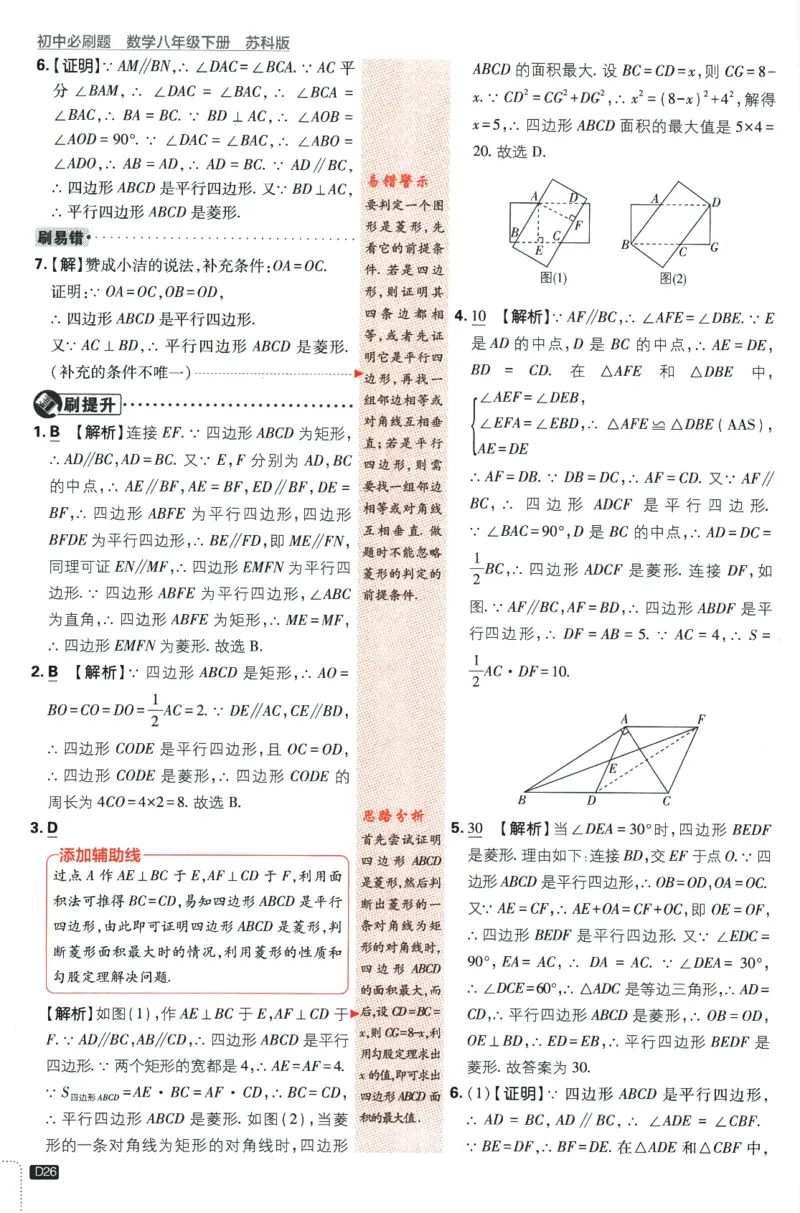 初中必刷题 数学八年级下册 苏科版
6.【证明】∵ AM∥BN,∴ ∠DAC=∠BCA.∵ AC 平
分 ∠BAM, ∴ ∠DAC = ∠BAC, ∴ ∠BCA =
∠BAC,∴ BA = BC. ∵ BD ⊥ AC, ∴ ∠AOB =
∠AOD = 90°. ∵ ∠DAC = ∠BAC,∴ ∠ABO =
∠ADO,∴ AB = AD,∴ AD = BC. ∵ AD∥BC,
∴ 四边形 ABCD 是平行四边形. 又∵ BD⊥AC,
∴ 平行四边形 ABCD 是菱形.
刷易错
7.【解】赞成小洁的说法,补充条件:OA=OC.
证明:∵ OA=OC,OB=OD,
∴ 四边形 ABCD 是平行四边形.
又∵ AC⊥BD,∴ 平行四边形 ABCD 是菱形.
(补充的条件不唯一)
刷提升
1. B 【解析】连接 EF. ∵ 四边形 ABCD 为矩形,
∴ AD∥BC,AD=BC. 又∵ E,F 分别为 AD,BC
的中点,∴ AE∥BF,AE=BF,ED∥BF,DE=
BF,∴ 四边形 ABFE 为平行四边形,四边形
BFDE 为平行四边形,∴ BE∥FD,即 ME∥FN,
同理可证 EN∥MF,∴ 四边形 EMFN 为平行四
边形. ∵ 四边形 ABFE 为平行四边形,∠ABC
为直角,∴ 四边形 ABFE 为矩形,∴ ME=MF,
∴ 四边形 EMFN 为菱形. 故选 B.
2. B 【解析】∵ 四边形 ABCD 是矩形,∴ AO=
BO=CO=DO=1/2AC=2. ∵ DE∥AC,CE∥BD,
∴ 四边形 CODE 是平行四边形,且 OC=OD,
∴ 四边形 CODE 是菱形,∴ 四边形 CODE 的
周长为 4CO=4×2=8. 故选 B.
3. D
添加辅助线
过点 A 作 AE⊥BC 于 E,AF⊥CD 于 F,利用面
积法可推得 BC=CD,易知四边形 ABCD 是平行
四边形,由此即可证明四边形 ABCD 是菱形,判
断菱形面积最大时的情况,利用菱形的性质和
勾股定理解决问题.
【解析】如图(1),作 AE⊥BC 于 E,AF⊥CD 于
F. ∵ AD∥BC,AB∥CD,∴ 四边形 ABCD 是平行
四边形. ∵ 两个矩形的宽都是 4,∴ AE=AF=4.
∵ S四边形ABCD=AE·BC=AF·CD,∴ BC=CD,
∴ 平行四边形 ABCD 是菱形. 如图(2),当菱
形的一条对角线为矩形的对角线时,四边形
D26
易错警示
要判定一个图
形是菱形,先
看它的前提条
件. 若是四边
形,则证明其
四条边都相
等,或者先证
明它是平行四
边形,再找一
组邻边相等或
对角线互相垂
直;若是平行
四边形,则需
要找一组邻边
相等或对角线
互相垂直. 做
题时不能忽略
菱形的判定的
前提条件.
思路分析
首先尝试证明
四边形 ABCD
是菱形,然后判
断出菱形的一
条对角线为矩
形的对角线时,
四边形 ABCD
的面积最大,而
后,设 CD=BC=
x,则 CG=8-x,利
用勾股定理求出
x 的值,即可求出
四边形 ABCD 面
积的最大值.
ABCD 的面积最大. 设 BC=CD=x,则 CG=8-
x. ∵ CD²=CG²+DG²,∴ x²=(8-x)²+4²,解得
x=5,∴ 四边形 ABCD 面积的最大值是 5×4=
20. 故选 D.
A D
F
B C
E
图(1)
A D
B C G
图(2)
4. 10 【解析】∵ AF∥BC,∴ ∠AFE=∠DBE. ∵ E
是 AD 的中点,D 是 BC 的中点,∴ AE=DE,
BD = CD. 在 △AFE 和 △DBE 中,
∠AEF=∠DEB,
∠EFA=∠EBD,∴ △AFE≌△DBE(AAS),
AE=DE
∴ AF=DB. ∵ DB=DC,∴ AF=CD. 又∵ AF∥
BC, ∴ 四边形 ADCF 是平行四边形.
∵ ∠BAC=90°,D 是 BC 的中点,∴ AD=DC=
1/2BC,∴ 四边形 ADCF 是菱形. 连接 DF,如
图. ∵ AF∥BC,AF=BD,∴ 四边形 ABDF 是平
行四边形,∴ DF=AB=5. ∵ AC=4,∴ S=
1/2AC·DF=10.
A F
E
B D C
5. 30 【解析】当∠DEA=30°时,四边形 BEDF
是菱形. 理由如下:连接 BD,交 EF 于点 O. ∵ 四
边形 ABCD 是平行四边形,∴ OB=OD,OA=OC.
又∵ AE=CF,∴ AE+OA=CF+OC,即 OE=OF,
∴ 四边形 BEDF 是平行四边形. 又∵ ∠EDC=
90°, EA = AC, ∴ DA = AC. ∵ ∠DEA = 30°,
∴ ∠DCE=60°,∴ △ADC 是等边三角形,∴ AD=
CD,∴ 平行四边形 ABCD 是菱形,∴ OB=OD,
OE⊥BD,∴ ED=EB,∴ 平行四边形 BEDF 是
菱形. 故答案为 30.
6. (1)【证明】∵ 四边形 ABCD 是平行四边形,
∴ AD = BC, AD∥BC, ∴ ∠ADE = ∠CBF.
∵ BE=DF,∴ BF=DE. 在△ADE 和△CBF 中,